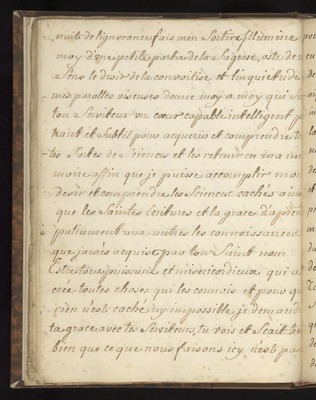 nuits de lignorance fais men Sortir Illumine
moy d'vne petite partie de la Sagesse, oste de
Sens le desir de la convoitise et linquietude
mes paroles viseuses donne moy a moy qui
ton Serviteur vn cœur capable intelligent
et Subtil pour acquerir et comprendre
tes Sortes de Sciences et les retenir en ma
moire affin que je puisse accomplir mon
desir et comprendre les Sciences cachés
que les Saintes Ecritures et la grace d'aprendre
aux autres les connoissances
que jaurés acquis par ton Saint nom
et misericordieux qui a
créé toutes choses qui les connais et pour
rien n'est caché ny impossible je demande
ta grace avec tes Serviteurs, tu vois et Scait
bien que ce que nous faisons icy n'est pas